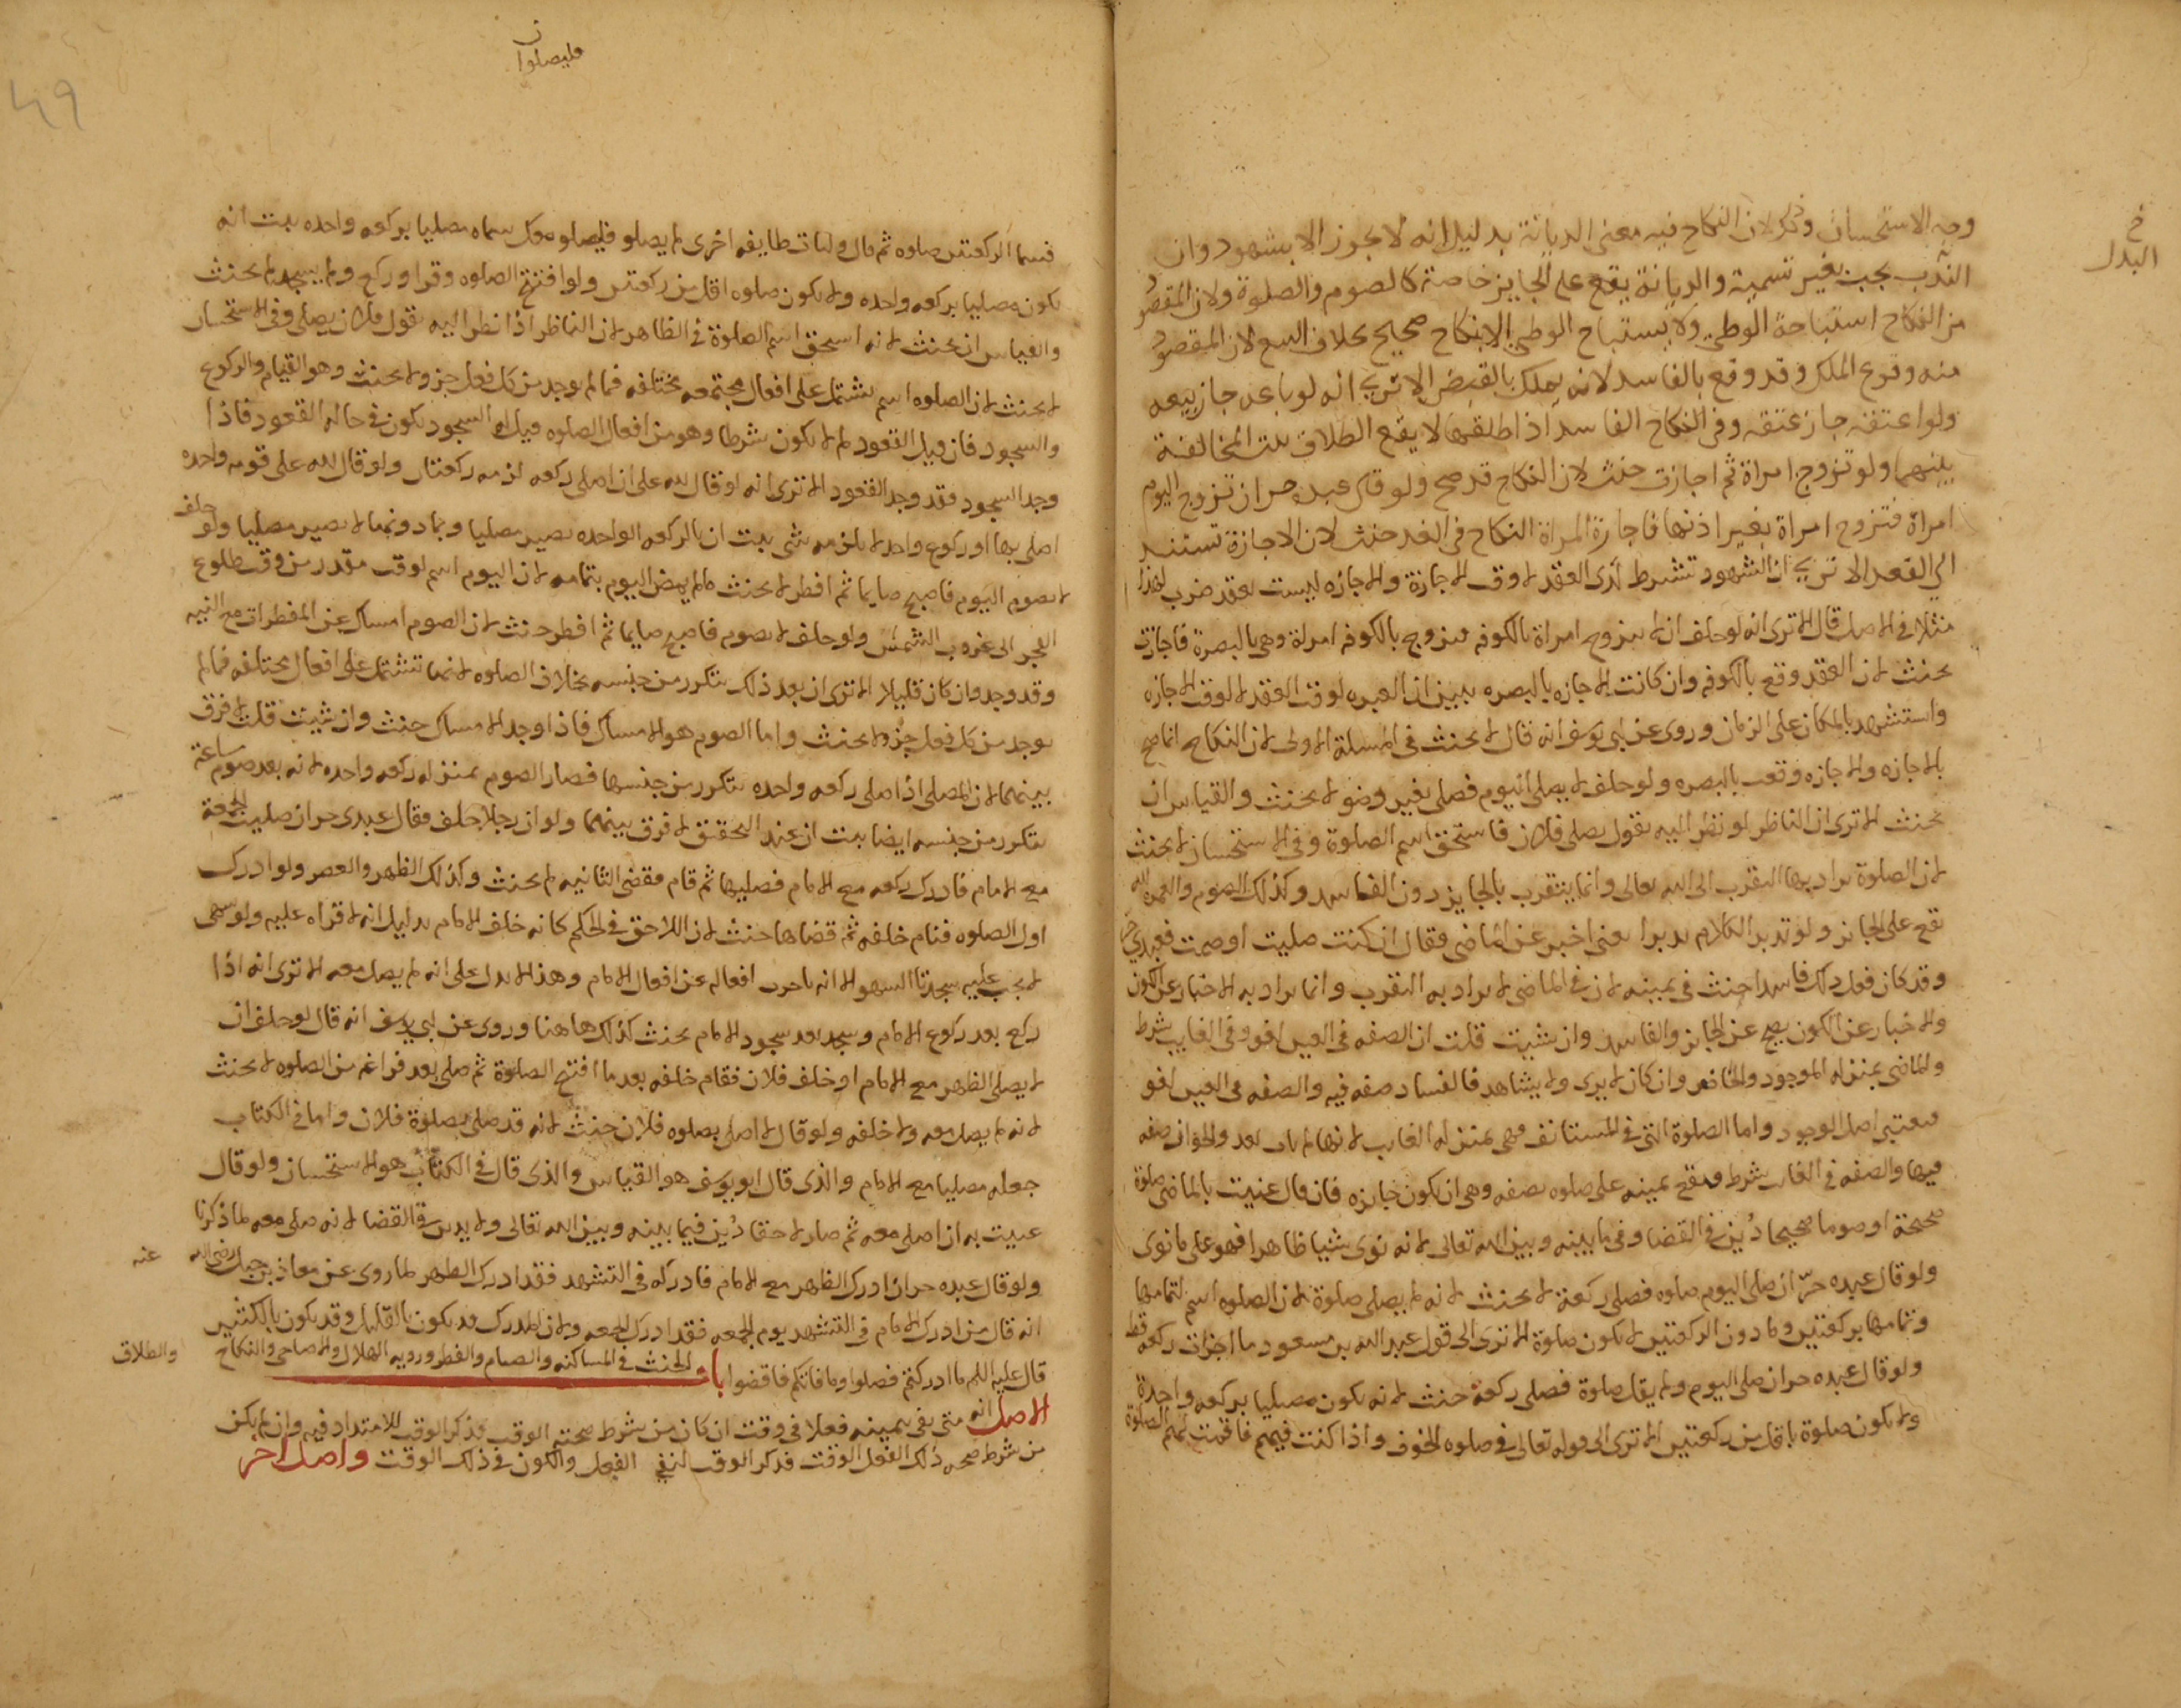 وجه الاستحسان وذكر لان النكاح فيه معنى الديانة بدليل انه لا يجوز الا بشهود وان
خ
البدل
الندب يجب بغير تسمية والديانة يقع على الجايز خاصة كالصوم والصلوة ولان المقصود
من النكاح استباحة الوطي ولا يستباح الوطي الا بنكاح صحيح بخلاف البيع لان المقصود
منه وقوع الملك وقد وقع بالفاسد لانه يملك بالقبض الا تري انه لو باعه جاز بيعه
ولو اعتقه جاز عتقه وفي النكاح الفاسد اذا طلقها لا يقع الطلاق ثبت المخالفة
بينهما ولو تزوج امراة ثم اجازت حنث لان النكاح قد صح ولو قال عبده حر ان تزوج اليوم
امراة فتزوج امراة بغير اذنها فاجازة المراة النكاح في الغد حنث لان الاجازة تستند
الي العقد الا تري ان الشهود تشرط لدى العقد لا وقت الاجازة والاجازه ليست بعقد ضرب لهذا
مثلا في الاصل قال الا ترى انه لو حلف ان لا يتزوج امراة بالكوفه فتزوج بالكوفه امراة وهي بالبصرة فاجازت
يحنث لان العقد وقع بالكوفه وان كانت الاجازه بالبصره يبين ان العبره لوقت العقد لا لوقت الاجازه
واستشهد بالمكان على الزمان وروى عن ابي يوسف انه قال لا يحنث في المسلة الاولى لان النكاح انما صح
بالاجازه والاجازه وقعت بالبصره ولو حلف لا يصلي اليوم فصلى بغير وضو لا يحنث والقياس ان
يحنث الا ترى ان الناظر لو نظر اليه يقول يصلي فلان فاستحق اسم الصلوة وفي الاستحسان لا يحنث
لان الصلوة يراد بها التقرب الى الله تعالى وانما يتقرب بالجايز دون الفاسد وكذلك الصوم والعمره
يقع على الجايز ولو تدبر الكلام تدبرا يعني اخبر عن الماضي فقال ان كنت صليت او صمت فعبدي حر
وقد كان فعل ذلك فاسدا حنث في يمينه لان في الماضي لا يراد به التقرب وانما يراد به الاخبار عن الكون
والاخبار عن الكون يصح عن الجايز والفاسد وان شيت قلت ان الصفه في العين لغو وفي الغايب شرط
والماضي بمنزله الموجود والحاضر وان كان لا يرى ولا يشاهد فالفساد صفه فيه والصفه في العين لغو
فيعتبر اصل الوجود واما الصلوة التي في المستانف فهي بمنزله الغايب لانها لم يات بعد والجواز صفه
فيها والصفه في الغايب شرط فيقع يمينه على صلوه بصفه وهي ان يكون جايزه فان قال عنيت بالماضي صلوة
صحيحة او صوما صحيحا دُين في القضا وفي ما بينه وبين الله تعالى لانه نوى شيا ظاهرا فهو على ما نوى
ولو قال عبده حرّ ان صلى اليوم صلوه فصلى ركعة لا يحنث لانه لم يصلي صلوة لان الصلوه اسم لتمامها
وتمامها بركعتين وما دون الركعتين لا يكون صلوة الا ترى الى قول عبد الله بن مسعود ما اجزات ركعة قط
ولو قال عبده حر ان صلى اليوم ولم يقل صلوة فصلى ركعة حنث لانه يكون مصليا بركعه واحدة
ولا يكون صلوة باقل من ركعتين الا ترى الى قوله تعالى في صلوه الخوف واذا كنت فيهم فاقمت لهم الصلوة
ن
فليصلوا
49
فسما الركعتين صلوه ثم قال ولتات طايفه اخرى لم يصلو فليصلو معك سماه مصليا بركعه واحده يثبت انه
يكون مصليا بركعه واحده ولا يكون صلوه اقل من ركعتين ولو افتتح الصلوه وقرا وركع ولم يسجد لم يحنث
والقياس ان يحنث لانه استحق اسم الصلوة في الظاهر لان الناظر اذا نظر اليه يقول فلان يصلي وفي الاستحسان
لا يحنث لان الصلوه اسم يشتمل على افعال مجتمعه مختلفه فما لم يوجد من كل فعل جزو لا يحنث وهو القيام والركوع
والسجود فان قيل القعود لم لا يكون شرطا وهو من افعال الصلوه قيل له السجود يكون في حاله القعود فاذا
وجد السجود فقد وجد القعود الا ترى انه لو قال لله على ان اصلي ركعه لزمه ركعتان ولو قال لله على قومه واحده
اصلي بها او ركوع واحد لا يلزمه شي يثبت ان بالركعه الواحده يصير مصليا وبما دونها لا يصير مصليا ولو حلف
لا يصوم اليوم فاصبح صايما ثم افطر لا يحنث ما لم يمض اليوم بتمامه لان اليوم اسم لوقت مقدر من وقت طلوع
الفجر الى غروب الشمس ولو حلف لا يصوم فاصبح صايما ثم افطر حنث لان الصوم امساك عن المفطرات مع النيه
وقد وجد وان كان قليلا الا ترى ان بعد ذلك يتكرر من جنسه بخلاف الصلوه لانها تشتمل على افعال مختلفه فما لم
يوجد من كل فعل جزو لا يحنث واما الصوم هو الامساك فاذا وجد الامساك حنث وان شيت قلت لا فرق
بينهما لان المصلي اذا صلى ركعه واحده يتكرر من جنسها فصار الصوم بمنزله ركعه واحده لانه بعد صوم ساعة
يتكرر من جنسه ايضا يثبت ان عند التحقيق لا فرق بينهما ولو ان رجلا حلف فقال عبدى حر ان صليت الجمعة
مع الامام فادرك ركعه مع الامام فصليها ثم قام فقضى الثانيه لم يحنث وكذلك الظهر والعصر ولو ادرك
اول الصلوه فنام خلفه ثم قضاها حنث لان اللاحق في الحكم كانه خلف الامام بدليل انه لا قراه عليه ولو سهى
لا يجب عليه سجدتا السهو الا انه تاخرت افعاله عن افعال الامام وهذا لا يدل على انه لم يصل معه الا ترى انه اذا
ركع بعد ركوع الامام وسجد بعد سجود الامام يحنث كذلك هاهنا وروى عن ابي يوسف انه قال لو حلف ان
لا يصلي الظهر مع الامام او خلف فلان فقام خلفه بعد ما افتتح الصلوة ثم صلى بعد فراغه من الصلوه لا يحنث
لانه لم يصل معه ولا خلفه ولو قال لا اصلي بصلوه فلان حنث لانه قد صلى بصلوة فلان واما في الكتاب
جعله مصليا مع الامام والذى قال ابو يوسف هو القياس والذى قال في الكتاب هو الاستحسان ولو قال
عنيت به ان اصلي معه ثم صار لاحقا دُين فيما بينه وبين الله تعالى ولا يدين في القضا لانه صلى معه لما ذكرنا
ولو قال عبده حر ان ادرك الظهر مع الامام فادركه في التشهد فقد ادرك الظهر لما روى عن معاذ بن جبل رضي الله
عنه
انه قال من ادرك الامام في التشهد يوم الجمعه فقد ادرك الجمعه ولان المدرك قد يكون بالقليل وقد يكون بالكثير
قال عليه السلم ما ادركتم فصلوا وما فاتكم فاقضوا باب الحنث في المساكنه والصيام والفطر ورويه الهلال والاضاحي والنكاح
والطلاق
الاصل انه متى نفى بيمينه فعلا في وقت ان كان من شرط صحته الوقت فذكر الوقت للامتداد فيه وان لم يكن
من شرط صحه ذلك الفعل الوقت فذكر الوقت لنفي الفعل والكون في ذلك الوقت واصل اخر